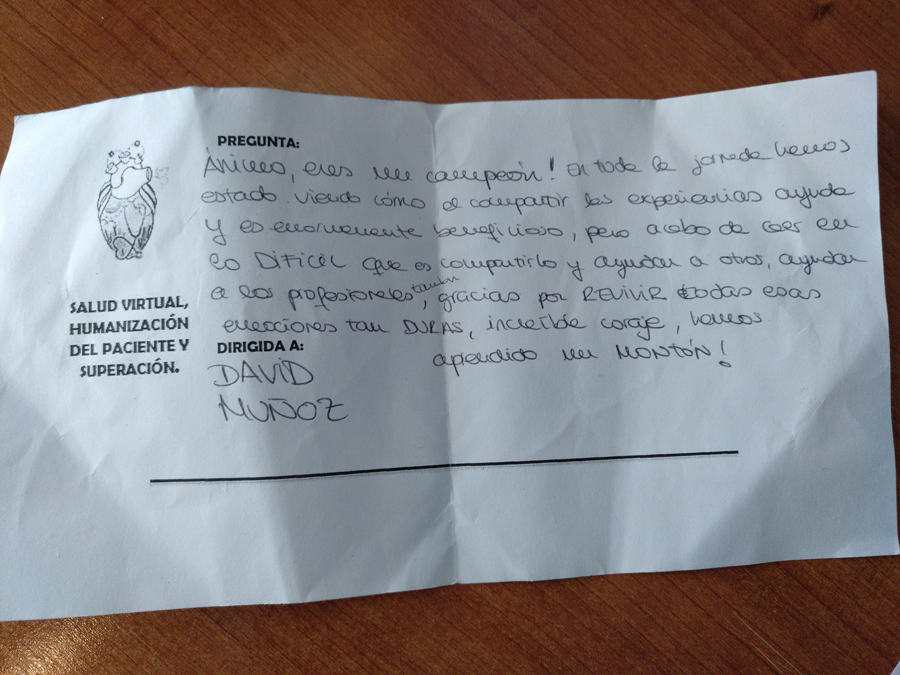 PREGUNTA:
Ánimo, eres un campeón! En toda la jornada hemos
estado viendo cómo el compartir las experiencias ayuda
y es enormemente beneficioso, pero acabo de caer en
lo DIFICIL que es compartirlo y ayudar a otros, ayudar
a los profesionales también, gracias por REVIVIR todas esas
emociones tan DURAS, increíble coraje, hemos
aprendido un MONTÓN!
SALUD VIRTUAL,
HUMANIZACIÓN
DEL PACIENTE Y
SUPERACIÓN.
DIRIGIDA A:
DAVID
MUÑOZ